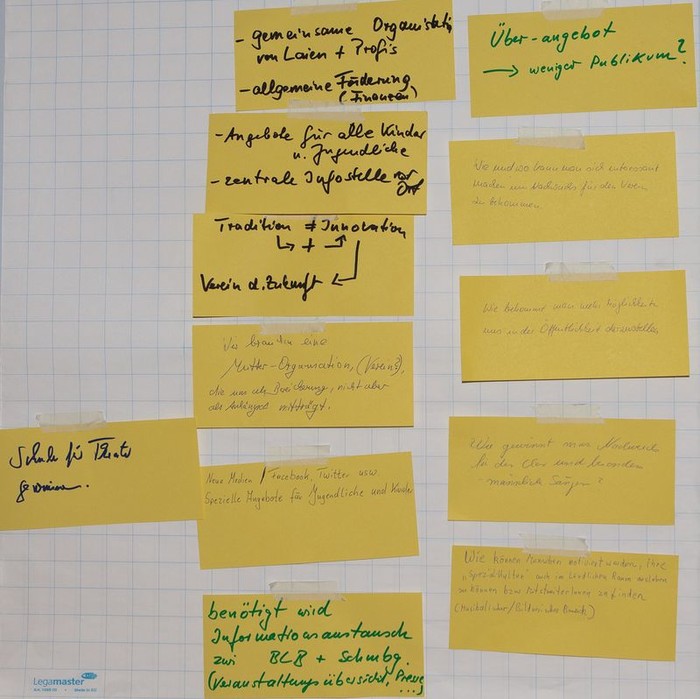 - gemeinsame Organisation
von Laien + Profis
- allgemeine Förderung
(Finanzen)
- Angebote für alle Kinder
u. Jugendliche
- zentrale Infostelle vor
Ort
Tradition ≠ Innovation
+
Verein d. Zukunft
Wir brauchen eine
Mutter-Organisation, (Verein?),
die uns als Bereicherung, nicht aber
als Anhängsel mitträgt.
Neue Medien / Facebook, Twitter usw
Spezielle Angebote für Jugendliche und Kinder
benötigt wird
Informationsaustausch
zwi BLB + Schmbg.
(Veranstaltungsübersicht, Presse
...)
Schule für Theater
gewinnen.
Über-angebot
→ weniger Publikum?
Wie und wo kann man sich interessant
machen um Nachwuchs für den Verein
zu bekommen
Wie bekommen wir mehr Möglichkeiten
uns in der Öffentlichkeit darzustellen
Wie gewinnt man Nachwuchs
für den Chor und besonders
männliche Sänger?
Wie können Menschen motiviert werden, ihre
"Spezialitäten" auch im ländlichen Raum ausleben
zu können bzw MitstreiterInnen zu finden
(Musikalischer/Bildnerischer Bereich)
Legamaster